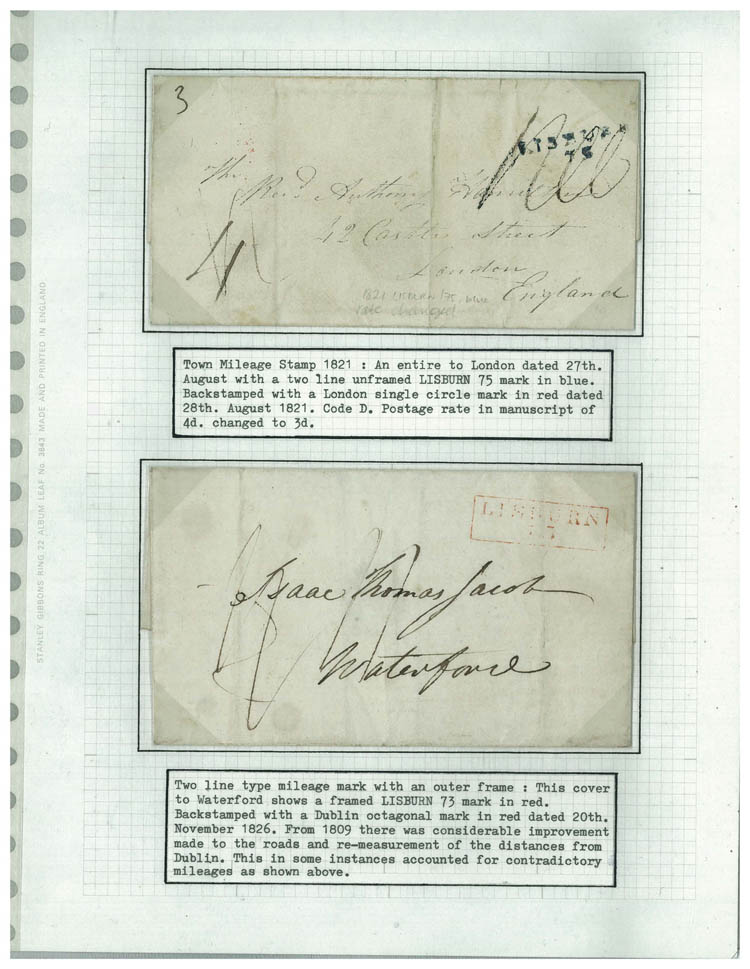 3
LISBURN
75
The
Revd. Anthony
42 Castle Street
London
England
1821 LISBURN 75, blue
rate changed
Town Mileage Stamp 1821 : An entire to London dated 27th.
August with a two line unframed LISBURN 75 mark in blue.
Backstamped with a London single circle mark in red dated
28th. August 1821. Code D. Postage rate in manuscript of
4d. changed to 3d.
LISBURN
73
Isaac Thomas Jacob
Waterford
Two line type mileage mark with an outer frame : This cover
to Waterford shows a framed LISBURN 73 mark in red.
Backstamped with a Dublin octagonal mark in red dated 20th.
November 1826. From 1809 there was considerable improvement
made to the roads and re-measurement of the distances from
Dublin. This in some instances accounted for contradictory
mileages as shown above.
STANLEY GIBBONS RING 22 ALBUM LEAF No. 3643 MADE AND PRINTED IN ENGLAND